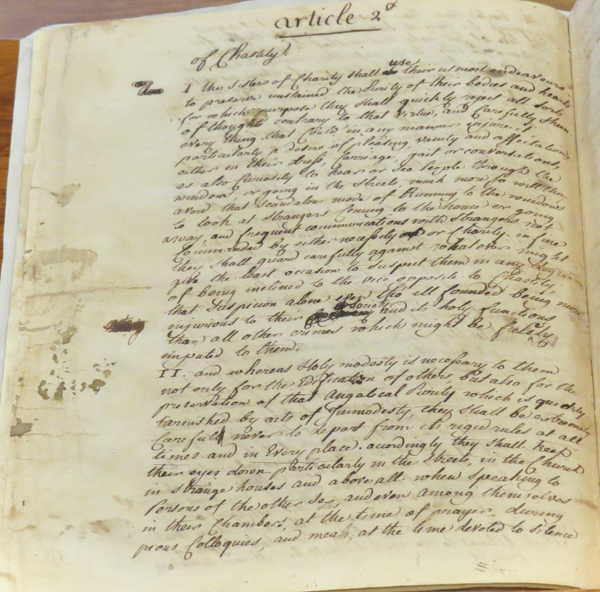 article 2d
of Chastity.
The
I the sisters of Charity shall use their utmost endeavours
to preserve unstained the Purity of their bodies and hearts
for which purpose they shall quickly reject all sorts
of thoughts contrary to that virtue, and carefully shun
every thing that could in any manner injure it
particularly a desire of pleasing, vanity and affectation
either in their dress, Carriage, gait or conversations,
as also Curiosity to hear or see People through the
windows or going in the Streets, much more so will they
avoid that Scandalous mode of Running to the windows
to look at strangers Coming to the house or going
away, and frequent communications with Strangers not
Commanded by either necessity or Charity. in fine
they shall guard carefully against whatever might
give the least occasion to suspect them in any degree
of being inclined to the vice opposite to Chastity
that suspicion alone tho ill founded being more
injurious to their Society and its holy functions
than all other crimes which might be falsely
imputed to them.
II. and whereas Holy modesty is necessary to them
not only for the Edification of others, but also for the
preservation of that Angelical Purity which is quickly
tarnished by acts of Immodesty, they shall be extremely
Careful never to depart from its rigid rules at all
times and in Every place. accordingly they shall keep
their eyes down particularly in the Streets, in the Church
in strange houses and above all when speaking to
Persons of the other Sex and even among themselves
in their Chambers, at the time of prayer, during
pious Colloquies, and meals, at the time devoted to Silence